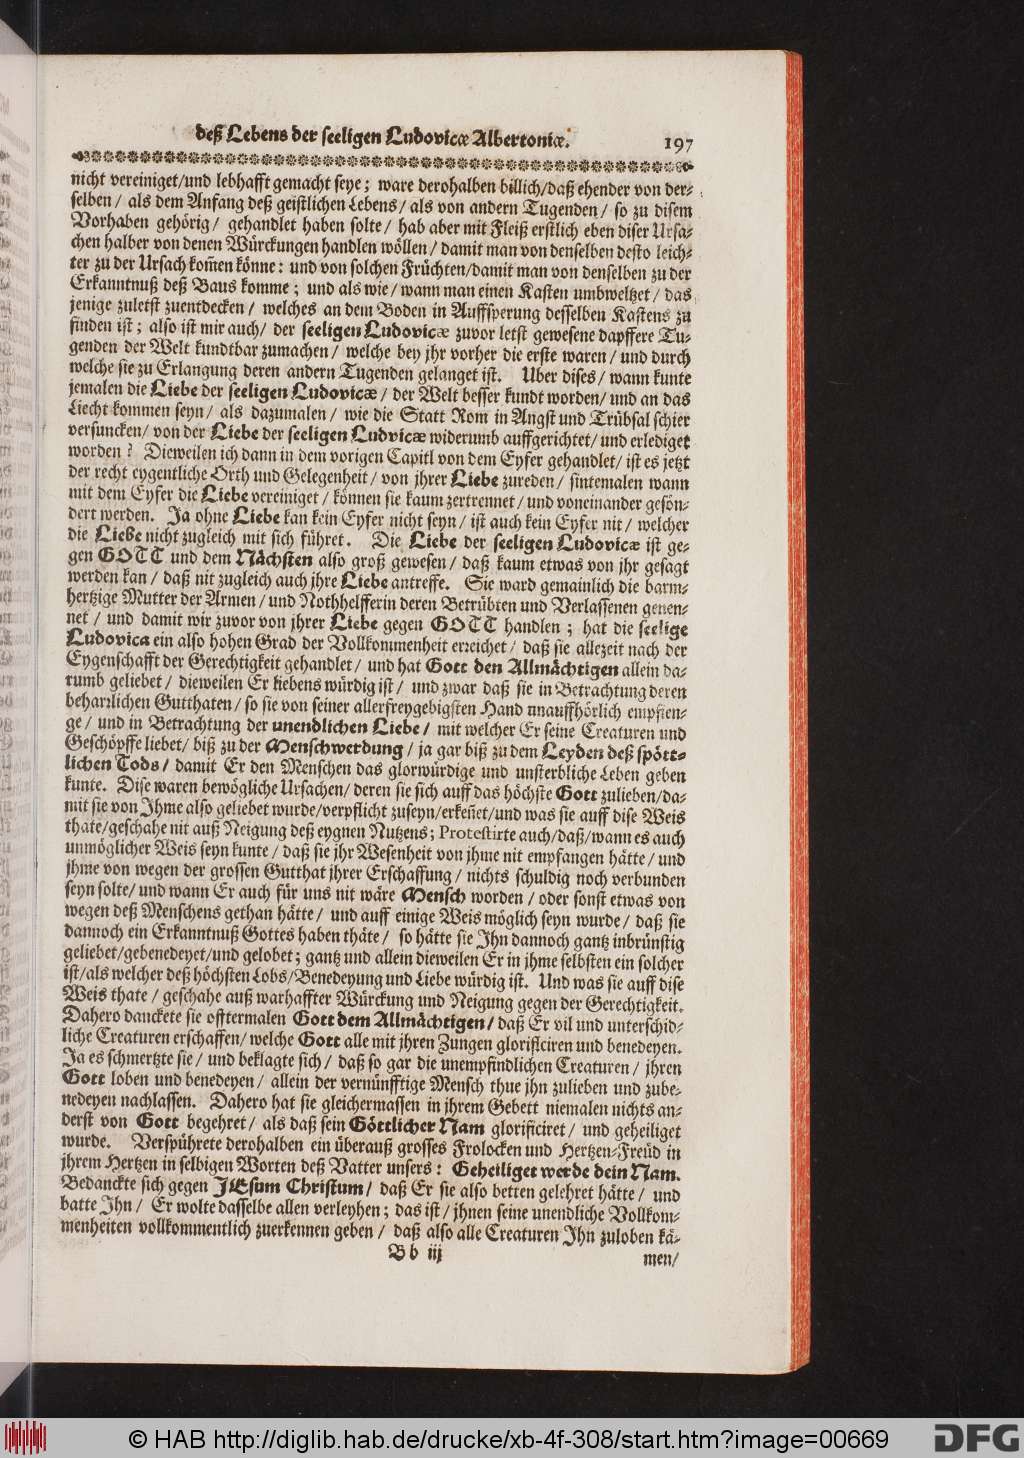 deß Lebens der seeligen Ludovicæ Albertoniæ. 197
nicht vereiniget/und lebhafft gemacht seye; ware derohalben billich/daß ehender von der-
selben/ als dem Anfang deß geistlichen Lebens/ als von andern Tugenden/ so zu disem
Vorhaben gehörig/ gehandlet haben solte/ hab aber mit Fleiß erstlich eben diser Ursa-
chen halber von denen Würckungen handlen wöllen/ damit man von denselben desto leich-
ter zu der Ursach kom̃en könne: und von solchen Früchten/damit man von denselben zu der
Erkanntnuß deß Baus komme; und als wie/ wann man einen Kasten umbweltzet/ das
jenige zuletst zuentdecken/ welches an dem Boden in Auffsperung desselben Kastens zu
finden ist; also ist mir auch/ der seeligen Ludovicæ zuvor letst gewesene dapffere Tu-
genden der Welt kundtbar zumachen/ welche bey jhr vorher die erste waren/ und durch
welche sie zu Erlangung deren andern Tugenden gelanget ist. Uber dises/ wann kunte
jemalen die Liebe der seeligen Ludovicæ/ der Welt besser kundt worden/ und an das
Liecht kommen seyn/ als dazumalen/ wie die Statt Rom in Angst und Trübsal schier
versuncken/ von der Liebe der seeligen Ludvicæ widerumb auffgerichtet/ und erlediget
worden? Dieweilen ich dann in dem vorigen Capitl von dem Eyfer gehandlet/ ist es jetzt
der recht eygentliche Orth und Gelegenheit/ von jhrer Liebe zureden/ sintemalen wann
mit dem Eyfer die Liebe vereiniget/ können sie kaum zertrennet/ und voneinander gesön-
dert werden. Ja ohne Liebe kan kein Eyfer nicht seyn/ ist auch kein Eyfer nit/ welcher
die Liebe nicht zugleich mit sich führet. Die Liebe der seeligen Ludovicæ ist ge-
gen GOTT und dem Nächsten also groß gewesen/ daß kaum etwas von jhr gesagt
werden kan/ daß nit zugleich auch jhre Liebe antreffe. Sie ward gemainlich die barm-
hertzige Mutter der Armen/ und Nothhelfferin deren Betrübten und Verlassenen genen-
net/ und damit wir zuvor von jhrer Liebe gegen GOTT handlen; hat die seelige
Ludovica ein also hohen Grad der Vollkommenheit erreichet/ daß sie allezeit nach der
Eygenschafft der Gerechtigkeit gehandlet/ und hat Gott den Allmächtigen allein da-
rumb geliebet/ dieweilen Er liebens würdig ist/ und zwar daß sie in Betrachtung deren
beharrlichen Gutthaten/ so sie von seiner allerfreygebigsten Hand unauffhörlich empfien-
ge/ und in Betrachtung der unendlichen Liebe/ mit welcher Er seine Creaturen und
Geschöpffe liebet/ biß zu der Menschwerdung/ ja gar biß zu dem Leyden deß spött-
lichen Tods/ damit Er den Menschen das glorwürdige und unsterbliche Leben geben
kunte. Dise waren bewögliche Ursachen/ deren sie sich auff das höchste Gott zulieben/da-
mit sie von Jhme also geliebet wurde/verpflicht zuseyn/erkeñet/und was sie auff dise Weis
thate/geschahe nit auß Neigung deß eygnen Nutzens; Protestirte auch/daß/wann es auch
unmöglicher Weis seyn kunte/ daß sie jhr Wesenheit von jhme nit empfangen hätte/ und
jhme von wegen der grossen Gutthat jhrer Erschaffung/ nichts schuldig noch verbunden
seyn solte/ und wann Er auch für uns nit wäre Mensch worden/ oder sonst etwas von
wegen deß Menschens gethan hätte/ und auff einige Weis möglich seyn wurde/ daß sie
dannoch ein Erkanntnuß Gottes haben thäte/ so hätte sie Jhn dannoch gantz inbrünstig
geliebet/gebenedeyet/und gelobet; gantz und allein dieweilen Er in jhme selbsten ein solcher
ist/als welcher deß höchsten Lobs/Benedeyung und Liebe würdig ist. Und was sie auff dise
Weis thate/ geschahe auß warhaffter Würckung und Neigung gegen der Gerechtigkeit.
Dahero danckete sie offtermalen Gott dem Allmächtigen/ daß Er vil und unterschid-
liche Creaturen erschaffen/ welche Gott alle mit jhren Zungen glorificiren und benedeyen.
Ja es schmertzte sie/ und beklagte sich/ daß so gar die unempfindlichen Creaturen/ jhren
Gott loben und benedeyen/ allein der vernünfftige Mensch thue jhn zulieben und zube-
nedeyen nachlassen. Dahero hat sie gleichermassen in jhrem Gebett niemalen nichts an-
derst von Gott begehret/ als daß sein Göttlicher Nam glorificiret/ und geheiliget
wurde. Verspührete derohalben ein überauß grosses Frolocken und Hertzen-Freüd in
jhrem Hertzen in selbigen Worten deß Vatter unsers: Geheiliget werde dein Nam.
Bedanckte sich gegen JEsum Christum/ daß Er sie also betten gelehret hätte/ und
batte Jhn/ Er wolte dasselbe allen verleyhen; das ist/ jhnen seine unendliche Vollkom-
menheiten vollkommentlich zuerkennen geben/ daß also alle Creaturen Jhn zuloben kä-
B b iij men/
© HAB http://diglib.hab.de/drucke/xb-4f-308/start.htm?image=00669 DFG